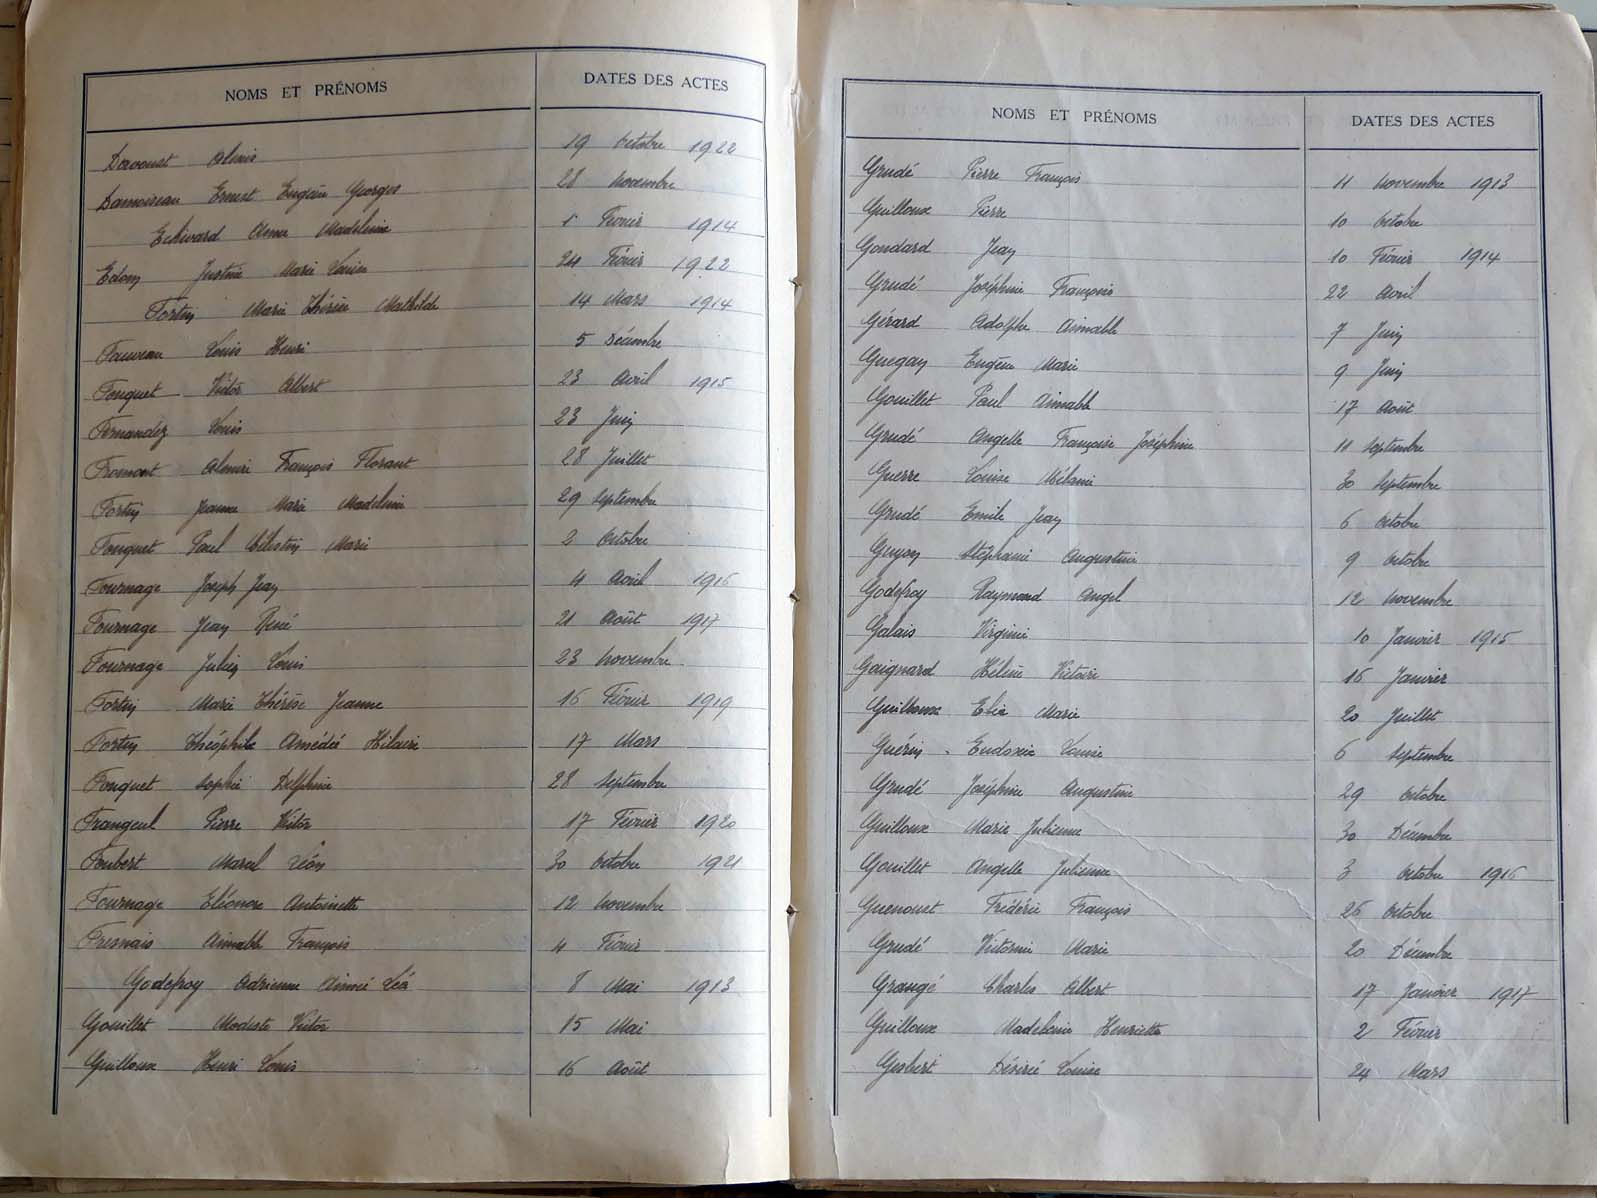 NOMS ET PRÉNOMS DATES DES ACTES
Davoust Alexis 19 Octobre 1922
Damoiseau Ernest Eugène Georges 28 Novembre
Echivard Anna Madeleine 1 Février 1914
Edom Justine Marie Louise 24 Février 1922
Fortin Marie Thérèse Mathilde 14 Mars 1914
Fauveau Louis Henri 5 Décembre
Fouquet Victor Albert 23 Avril 1915
Fernandez Louis 23 Juin
Fromont Almire François Florant 28 Juillet
Fortin Jeanne Marie Madeleine 29 Septembre
Fouquet Paul Célestin Marie 2 Octobre
Fournage Joseph Jean 4 Avril 1916
Fournage Jean René 21 Août 1917
Fournage Julien Louis 23 Novembre
Fortin Marie Thérèse Jeanne 16 Février 1919
Fortin Théophile Amédée Hilaire 17 Mars
Fouquet Sophie Delphine 28 Septembre
Frangeul Pierre Victor 17 Février 1920
Foubert Marcel Léon 30 Octobre 1921
Fournage Eléonore Antoinette 12 Novembre
Fresnais Aimable François 4 Février
Godefroy Adrienne Aimée Léa 8 Mai 1913
Gouillet Modeste Victor 15 Mai
Guilloux Henri Louis 16 Août
NOMS ET PRÉNOMS DATES DES ACTES
Grudé Pierre François 11 Novembre 1913
Guilloux Pierre 10 Octobre
Gondard Jean 10 Février 1914
Grudé Joséphine Françoise 22 Avril
Gérard Adolphe Aimable 7 Juin
Guegan Eugène Marie 9 Juin
Gouillet Paul Aimable 17 Août
Grudé Angelle Françoise Joséphine 11 Septembre
Guerre Louise Mélanie 30 Septembre
Grudé Emile Jean 6 Octobre
Guyon Stéphanie Augustine 9 Octobre
Godefroy Raymond Angel 12 Novembre
Galais Virginie 10 Janvier 1915
Gaignard Hélène Victoire 16 Janvier
Guilloux Marie 20 Juillet
Guérin Eudoxie Louise 6 Septembre
Grudé Joséphine Augustine 29 Octobre
Guilloux Marie Julienne 30 Décembre
Gouillet Angelle Julienne 3 Octobre 1916
Guenouet Frédéric François 26 Octobre
Grudé Victorine Marie 20 Décembre
Grangé Charles Albert 17 Janvier 1917
Guilloux Madeleine Henriette 2 Février
Gesbert Désirée Louise 24 Mars